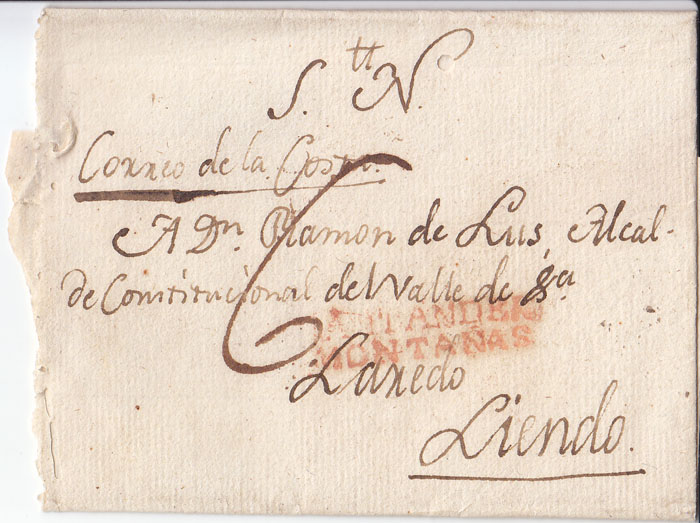 S. N.
tt
Correo de la Costa.
A Dn. Ramon de Lus, Alcal-
de Constitucional del Valle de &ca
SANTANDER
MONTAÑAS
Laredo
Liendo.
6